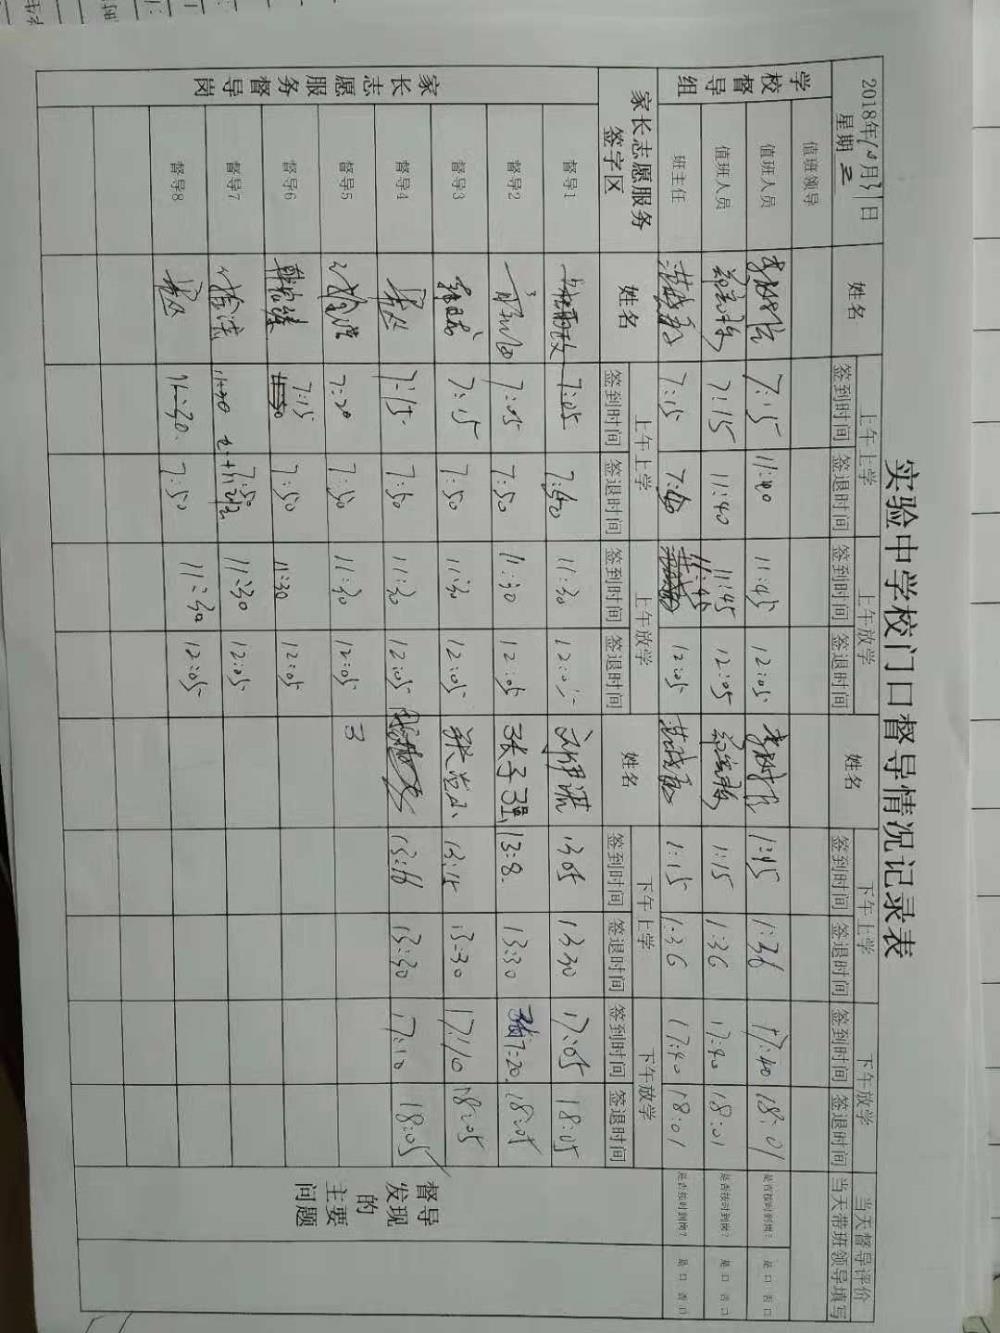 实验中学校门口督导情况记录表
2018年10月31日
星期三
姓名
上午上学
上午放学
姓名
下午上学
下午放学
当天督导评价
当天带班领导填写
签到时间 签退时间 签到时间 签退时间 签到时间 签退时间 签到时间 签退时间
学校督导组
值班领导
值班人员 7:15 11:40 11:45 12:05 1:15 1:36 17:40 18:01 是否按时到岗? 是口 否口
值班人员 7:15 11:40 11:45 12:05 1:15 1:36 17:40 18:01 是否按时到岗? 是口 否口
班主任 7:15 7:40 11:45 12:05 1:15 1:36 17:40 18:01 是否按时到岗? 是口 否口
家长志愿服务
签字区
姓名
上午上学
上午放学
姓名
下午上学
下午放学
签到时间 签退时间 签到时间 签退时间 签到时间 签退时间 签到时间 签退时间
督导
发现
的
主要
问题
家长志愿服务督导岗
督导1 7:05 7:50 11:30 12:05 13:05 13:30 17:05 18:05
督导2 7:05 7:50 11:30 12:05 张子强 13:8 13:30 17:20 18:05
督导3 7:15 7:50 11:30 12:05 13:15 13:30 17:10 18:05
督导4 7:15 7:50 11:30 12:05 13:16 13:30 17:10 18:05
督导5 7:20 7:50 11:30 12:05 3
督导6 7:15 7:50 11:30 12:05
督导7 7:50 11:30 12:05
督导8 11:30 7:50 11:30 12:05